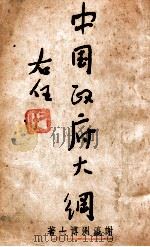 中国政府大綱
右任
謝瀛洲博士著